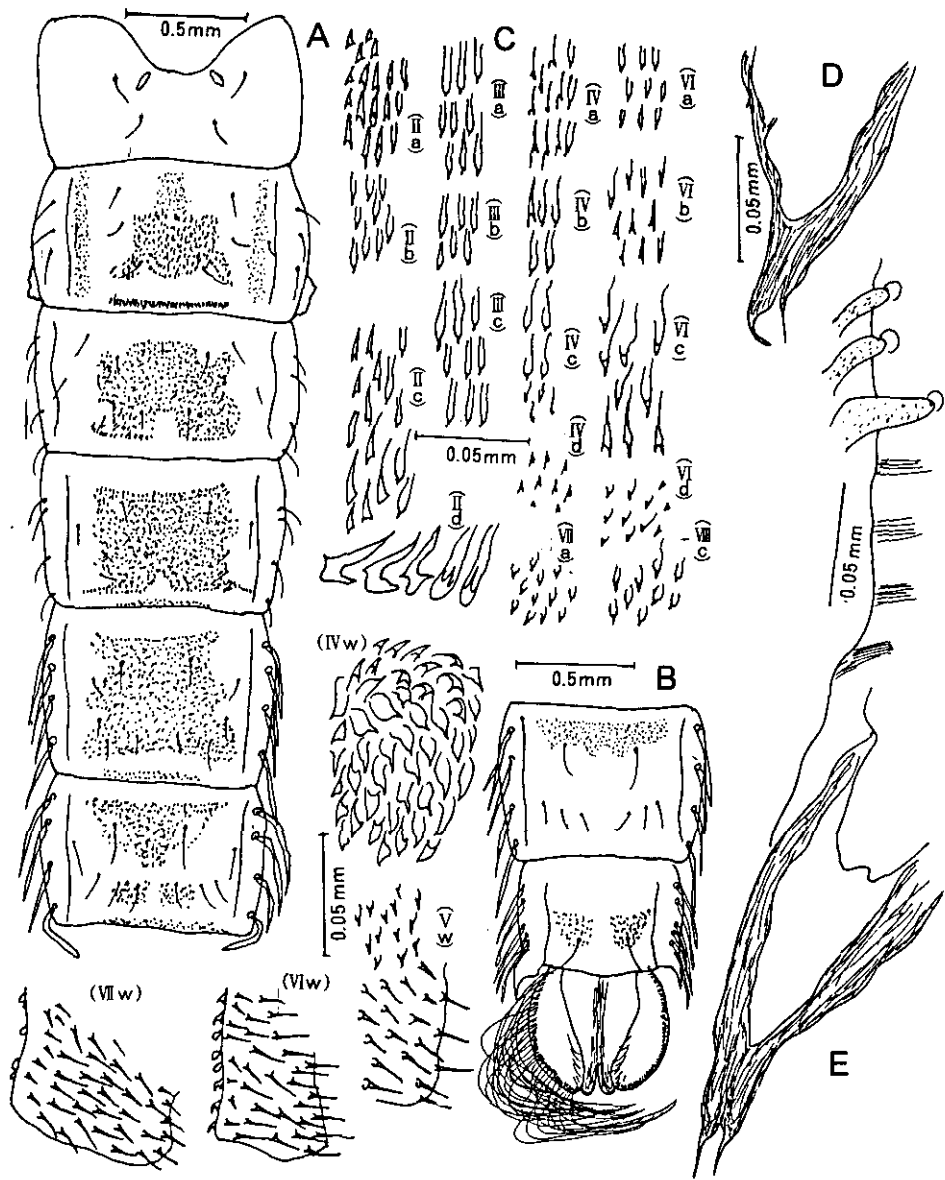 0.5mm
A
C
D
(IIa)
(IIIa)
(IVa)
(VIa)
(IIb)
(IIIb)
(IVb)
(VIb)
0.05mm
(IIc)
(IIIc)
(IVc)
(VIc)
0.05mm
(IId)
(IVd)
(VId)
(VIIa)
(VIIIc)
0.05mm
(IVw)
0.5mm
B
0.05mm
(Vw)
(VIIw)
(VIw)
E